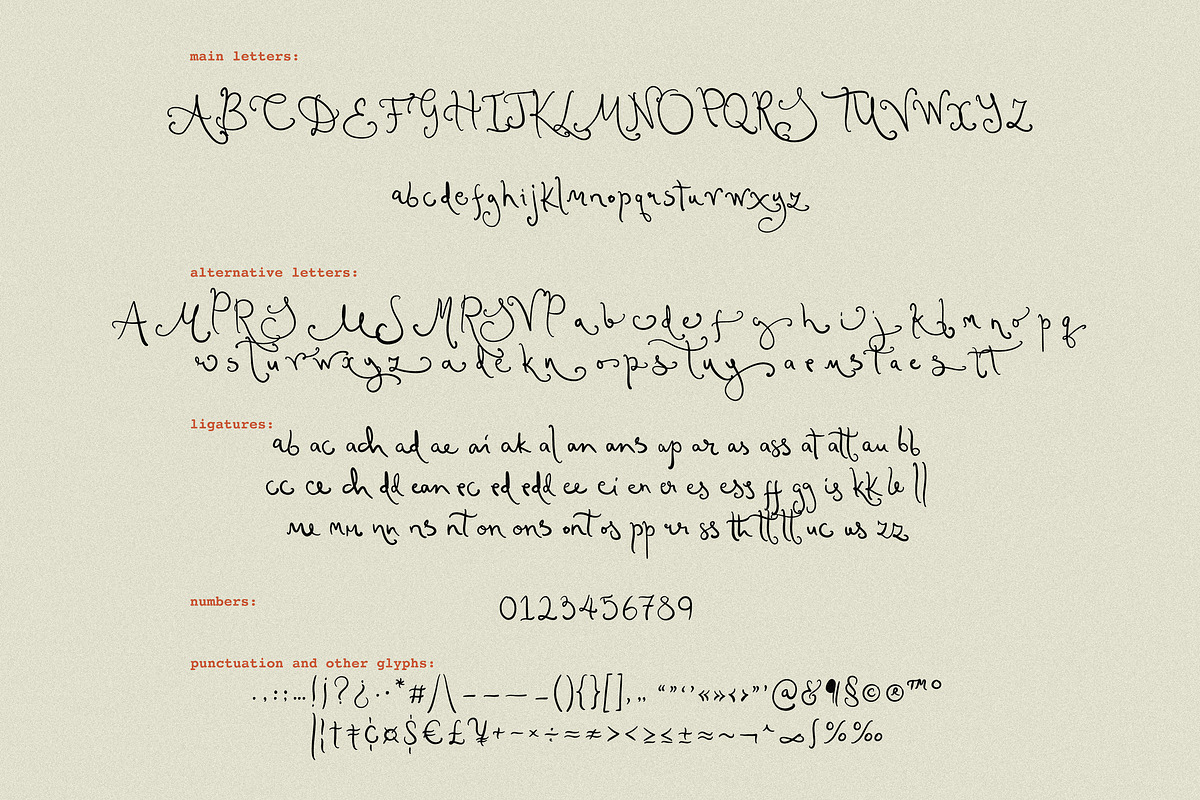 main letters:
ABCDEFGHIJKLMNOPQRSTUVWXYZ
abcdefghijklmnopqrsturwxyz
alternative letters:
A M P R S M S M R S V P a b c d e f g h i j k l m n o p q
r s t u v w x y z a d e k n o p s t u y a e m s t a e s tt
ligatures:
ab ac ach ad ae ai ak al an ans ap ar as ass at att au bb
cc ce ch dd ean ec ed edd ee ei en er es ess ff gg is kk le ll
me mm nn ns nt on ons ont os pp rr ss th tt ltt uc us zz
numbers:
0123456789
punctuation and other glyphs:
. , : ; … ! ¡ ? ¿ · • * # / \ - – — _ ( ) { } [ ] ‚ „ “ ” ‘ ’ « » ‹ › " ' @ & ¶ § © ® ™ °
| ¦ † ‡ ¢ ¤ $ € £ ¥ + − × ÷ = ≠ > < ≥ ≤ ± ≈ ~ ¬ ^ ∞ ∫ % ‰